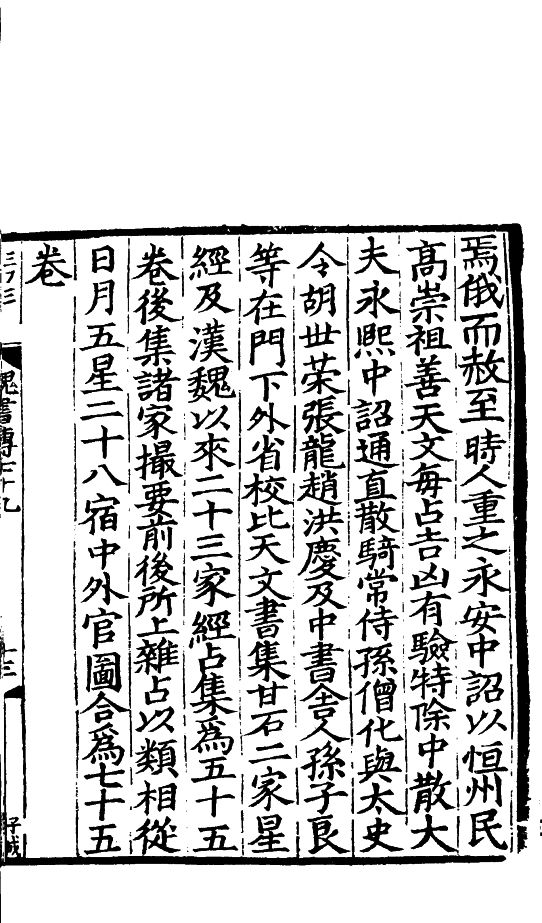 焉俄而赦至時人重之永安中詔以恒州民
高崇祖善天文每占吉凶有驗特除中散大
夫永熙中詔通直散騎常侍孫僧化與太史
令胡世荣張龍趙洪慶及中書舍人孫子良
等在門下外省校比天文書集甘石二家星
經及漢魏以來二十三家經占集爲五十五
卷後集諸家撮要前後所上雜占以類相從
日月五星二十八宿中外官圖合爲七十五
卷
魏書傳七十九
十三